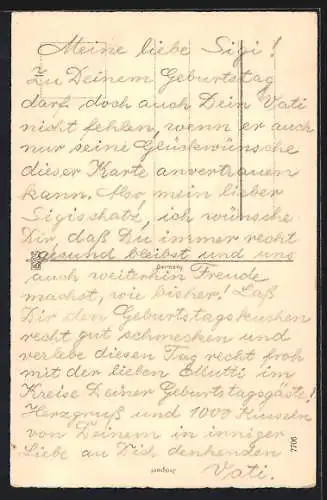 Meine liebe Sigi!
Zu Deinem Geburtstag
darf doch auch Dein Vati
nicht fehlen, wenn er auch
nur seine Glückwünsche
dieser Karte anvertrauen
kann. Also, mein lieber
Sigisschatz, ich wünsche
Dir, daß Du immer recht
gesund bleibst und uns
Germany
auch weiterhin Freude
machst, wie bisher! Laß
Dir den Geburtstagskuchen
recht gut schmecken und
verlebe diesen Tag recht froh
mit der lieben Mutti im
Kreise Deiner Geburtstagsgäste!
Herzgruß und 1000 Küssen
von Deinem in inniger
Liebe an Dich denkenden
Vati.
7706